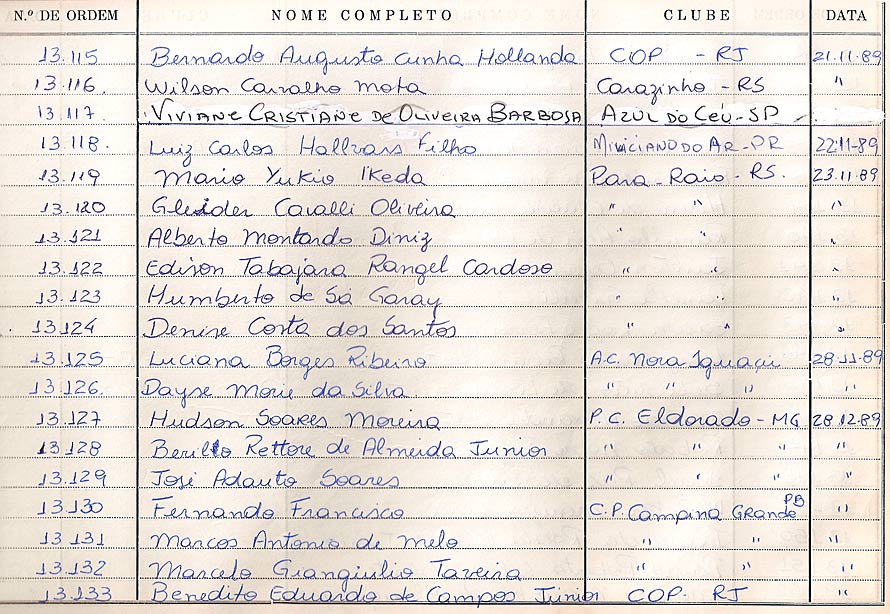 N.º DE ORDEM NOME COMPLETO CLUBE DATA
13.115 Bernardo Augusto Cunha Hollanda COP - RJ 21.11.89
13.116. Wilson Carvalho Mota Carazinho - RS "
13.117 VIVIANE CRISTIANE DE OLIVEIRA BARBOSA AZUL DO CÉU - SP
13.118. Luiz Carlos Hallvass Filho DO AR - PR 22.11-89
13.119 Mario Yukio Ikeda Para - Raio - RS. 23.11.89
13.120 Gleider Cavalli Oliveira " " "
13.121 Alberto Montardo Diniz " " "
13.122 Edison Tabajara Rangel Cardoso " " "
13.123 Humberto de Sá Garay " " "
13.124 Denise Costa dos Santos " " "
13.125 Luciana Borges Ribeiro A.C. Nova Iguaçu 28-11-89
13.126. Dayse Marie da Silva. " " " "
13.127 Hudson Soares Moreira P.C. Eldorado - MG 28.12.89
13.128 Berillo Rettore de Almeida Junior " " " "
13.129 José Adauto Soares " " " "
13.130 Fernando Francisco C.P. Campina Grande PB "
13.131 Marcos Antonio de Melo " " "
13.132 Marcelo Giangiulio Taveira " " "
13.133 Benedito Eduardo de Campos Júnior COP. RJ "